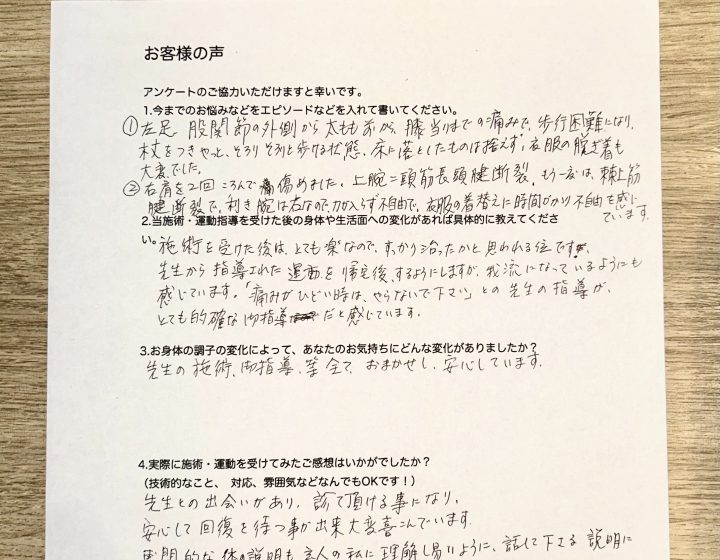 お客様の声
アンケートのご協力いただけますと幸いです。
1.今までのお悩みなどをエピソードなどを入れて書いてください。
①左足 股関節の外側から太もも前から、膝当りまでの痛みで、歩行困難になり、
杖をつきやっと、そろりそろりと歩ける状態、床に落としたものは拾えず、衣服の脱ぎ着も
大変でした。
②右肩を2回ころんで痛傷めました。上腕二頭筋長頭腱断裂、もう一度は、棘上筋
腱断裂で、利き腕は右なので、力が入らず不自由で、衣服の着替えに時間がかかり不自由を感じ
ています。
2.当施術・運動指導を受けた後の身体や生活面への変化があれば具体的に教えてくださ
い。
施術を受けた後は、とても楽なので、すっかり治ったかと思われる位です。
先生から指導された運動を帰宅後、するようにしますが、我流になっているようにも
感じています。「痛みがひどい時は、やらないで下さい」との先生の指導が、
とても的確な御指導だと感じています。
3.お身体の調子の変化によって、あなたのお気持ちにどんな変化がありましたか？
先生の施術、御指導、等全て、おまかせし、安心しています。
4.実際に施術・運動を受けてみたご感想はいかがでしたか？
（技術的なこと、 対応、雰囲気などなんでもOKです！）
先生との出会いがあり、診て頂ける事になり、
安心して回復を待つ事が出来大変喜こんでいます。
専門的な体の説明も素人の私に理解し易いように、話して下さる説明に